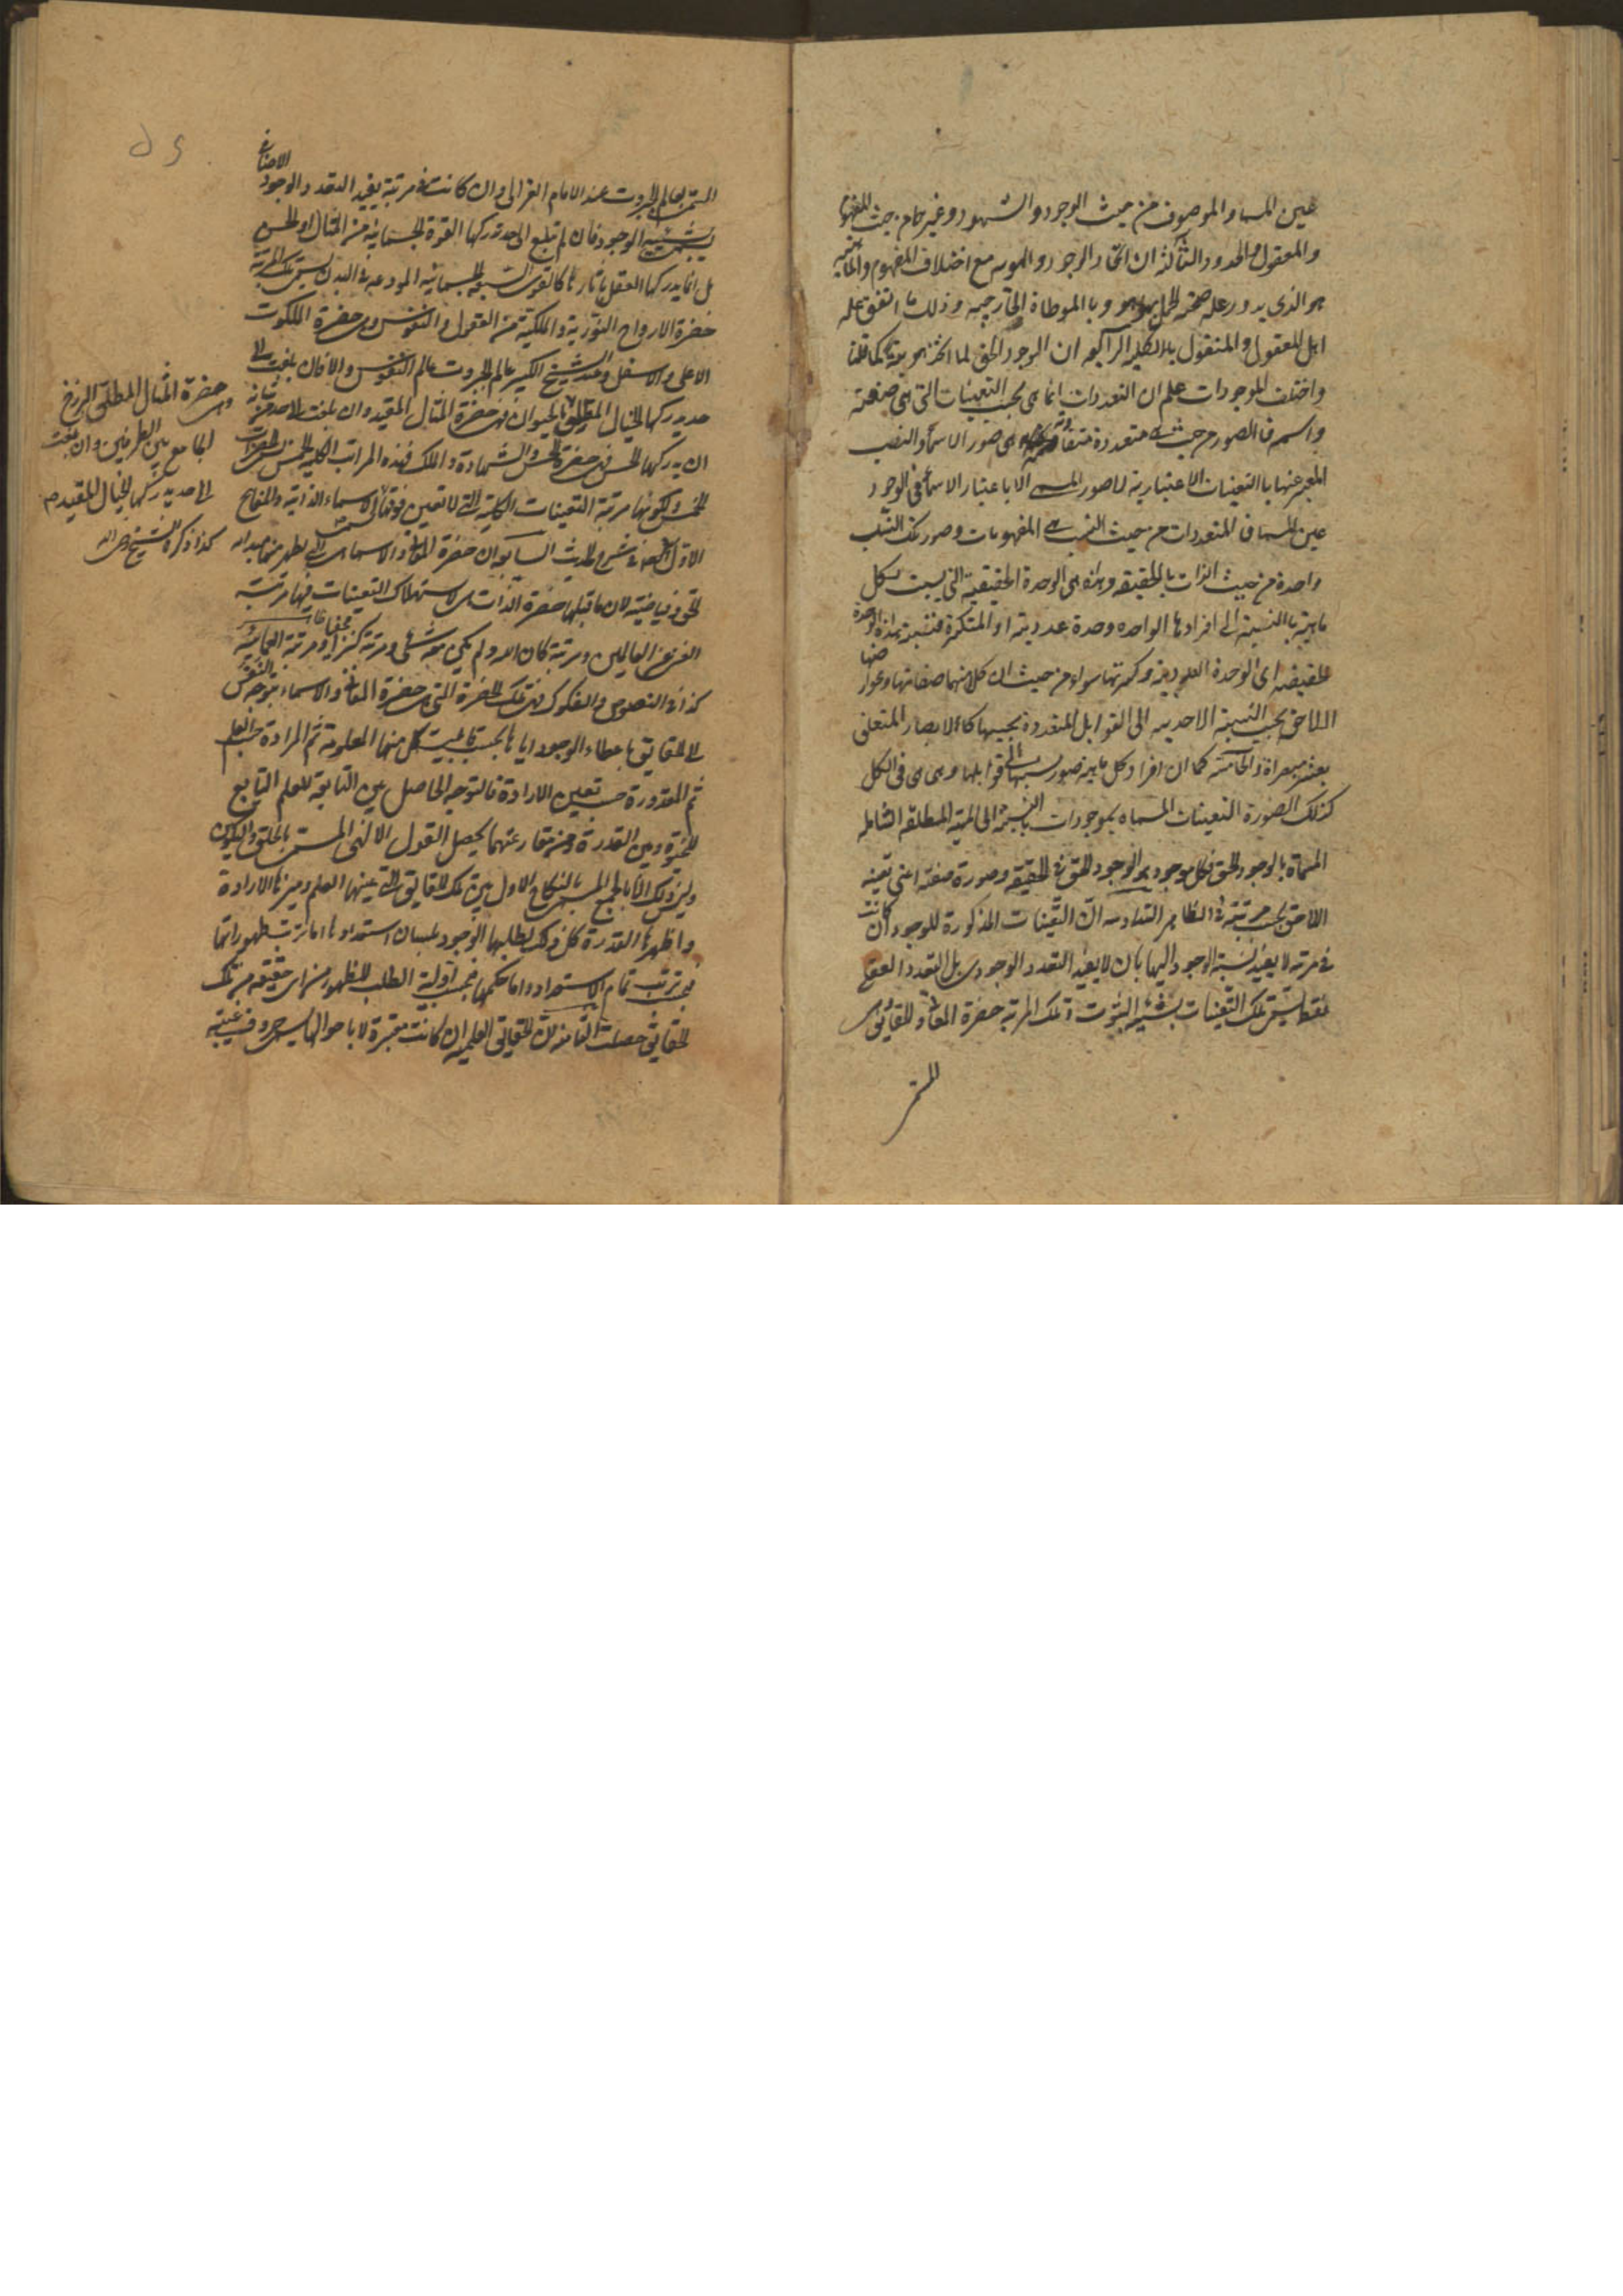 عين المسما والموصوف من حيث الوجود والشهود وغيرهما من حيث المفهوم
والمعقول والحدود والثالثة ان اتحاد الوجود والهويه مع اختلاف المفهوم والماهية
هو الذي يدور عليه صحة الحمل بهو هو وبالمواطاة الخارجيه وذلك ما اتفق عليه
اهل المعقول والمنقول بالكليه الرابعه ان الوجود الحق لما اتحد هويته كما قلنا
واختلفت الموجودات علم ان التعددات انما هي بحسب التعينات التي هي صفته
واسمه فالصور من حيث متعددة متفاوته هي صور الاسماء والنسب
المعبر عنها بالتعينات الاعتبارية لا صور المسمى الا باعتبار الاسماء في الوجود
عين المسما فالمتعددات من حيث النسب هي المفهومات وصور تلك النسب
واحدة من حيث الذات بالحقيقه وهذه هي الوحدة الحقيقية التي ليست لكل
ماهية بالنسبة الى افرادها الواحده وحدة عددية او المتكثرة فنسبة هذه الوحدة
الحقيقيه الى الوحدة العددية وكثرتها سواء من حيث ان كلا منهما صفاتها وعوارضها
اللاحق بحسب النسبة الاحديه الى القوابل المتعددة بحسبها كالابصار المتعلق
بعشر مراة والخامسة كما ان افراد كل ماهية صور نسبها الى قوابلها وهي هي في الكل
كذلك الصورة التعينات المسماه بموجودات بالنسبة الى الماهية المطلقة الشاملة
المسماة بالوجود الحق فكل موجود هو الوجود الحق في الحقيقه وصورة صفته اعني تعينه
اللاحق بحسب مرتبة في الظاهر السادسه ان التعينات المذكورة للوجود ان كانت
في مرتبه لا يفيد نسبة الوجود اليها بان لا يفيد التعدد الوجودي بل التعدد العقلي
فقط يسمى تلك التعينات بشيئية الثبوت وتلك المرتبة حضرة المعاني والحقائق وهي
المسمى
المسمى بعالم الجبروت عند الامام الغزالي وان كانت في مرتبة يفيد التعدد الوجود الاضافي
يسمى بشيئية الوجود فان لم تبلغ الى حد تدركها القوة الجسمانية من المثال او الحس
بل انما يدركها العقل باثارها كالقوى الجسمانيه المودعه في البدن يسمى تلك المرتبة
حضرة الارواح النورية والملكية من العقول والنفوس وهي حضرة الملكوت
الاعلى والاسفل وعند الشيخ الكبير عالم الجبروت عالم النفوس والا فان بلغت الى
حد يدركها الخيال المطلق بالحيوان فهي حضرة المثال المقيد وان بلغت الى حد من شانه
ان يدركها الحس فهي حضرة الحس والشهادة والملك فهذه المراتب الكليه الخمس هي الحضرات
الخمس ولكونها مرتبة التعينات الكلية التي لا تعين فوقها الاسماء الذاتية والمفاتح
الاول في شرح الحديث السابع ان حضرة المعاني والاسماء هي التي يظهر منها مبداء
الحق وفياضيته لان ما قبلها حضرة الذات هي لاستهلاك التعينات فيها مرتبة
الغني عن العالمين ومرتبة كان الله ولم يكن معه شئ ومرتبة كنزا مخفيا ومرتبة العمائية
كذا في النصوص والفكوك ففي تلك الحضرة التي هي حضرة المعاني والاسماء توجه
الى الحقايق باعطاء الوجود اياها بحسب قابلية كل منها المعلومة ثم المرادة حسب العلم
ثم المقدورة حسب تعين الارادة فالتوجه الحاصل بين التابعة للعلم التابع
للحيوة وبين القدرة ومن مقارعتهما يحصل القول الالهي المسمى بالخلق والتكوين
وليس ذلك الا بالجمع المسمى بالنكاح الاول بين تلك الحقايق التي عينها العلم وميزها الارادة
واظهرها القدرة كل ذلك بطلبها الوجود بلسان استعدادها اما ترتب ظهوراتها
فبحسب ترتب تمام الاستعداد واما حكمها فبحسب اولية الطلب للظهور من اي حقيقة من تلك
الحقايق حصلت الثامنة ان الحقايق العلميه ان كانت معتبرة لا باحوالها يسمى حروف غيبية
وهي حضرة المثال المطلق البرزخ
الجامع بين الطرفين وان بلغت
الى حد يدركها الخيال المقيد صح
كذا ذكره الشيخ رحمه الله